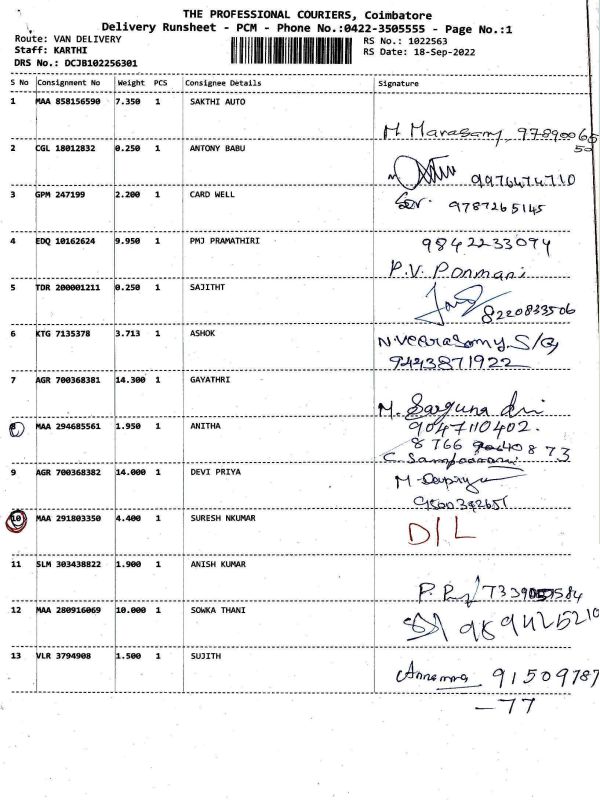 THE PROFESSIONAL COURIERS, Coimbatore
Delivery Runsheet - PCM - Phone No.:0422-3505555 - Page No.:1
Route: VAN DELIVERY
Staff: KARTHI
DRS No.: DCJB102256301
RS No.: 1022563
RS Date: 18-Sep-2022
S No Consignment No Weight PCS Consignee Details Signature
1 MAA 858156590 7.350 1 SAKTHI AUTO
M. Marasamy, 97890066
50
2 CGL 18012832 0.250 1 ANTONY BABU
9976474710
3 GPM 247199 2.200 1 CARD WELL
9787265145
4 EDQ 10162624 9.950 1 PMJ PRAMATHIRI
9842233094
P.V. Ponmani
5 TDR 200001211 0.250 1 SAJITHT
8220833506
6 KTG 7135378 3.713 1 ASHOK
N.Veerasamy S/G
9443871922
7 AGR 700368381 14.300 1 GAYATHRI
M. Sarguna
8 MAA 294685561 1.950 1 ANITHA
9047110402.
8766 40873
C. Sampoorani
9 AGR 700368382 14.000 1 DEVI PRIYA
M-
9500392651
10 MAA 291803350 4.400 1 SURESH NKUMAR
D/L
11 SLM 303438822 1.900 1 ANISH KUMAR
P.
12 MAA 280916069 10.000 1 SOWKA THANI
9894125210
13 VLR 3794908 1.500 1 SUJITH
91509787
-77